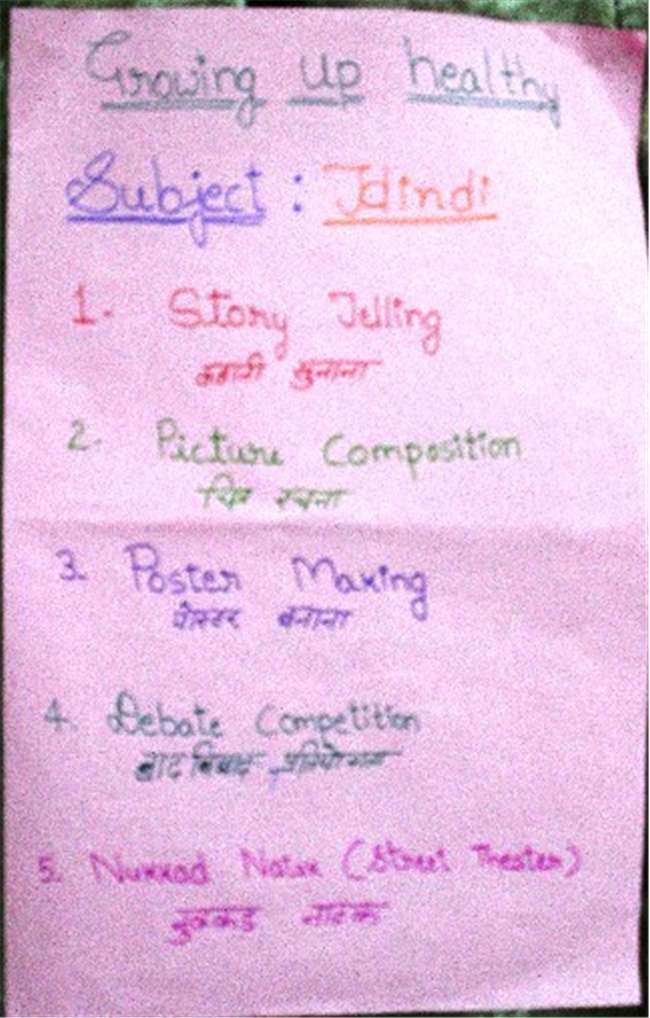 Growing up healthy
Subject : Hindi
1. Story Telling
कहानी सुनाना
2. Picture Composition
चित्र रचना
3. Poster Making
पोस्टर बनाना
4. Debate Competition
वाद विवाद
5. Nukkad Natak (Street Theater)
नुक्कड नाटक